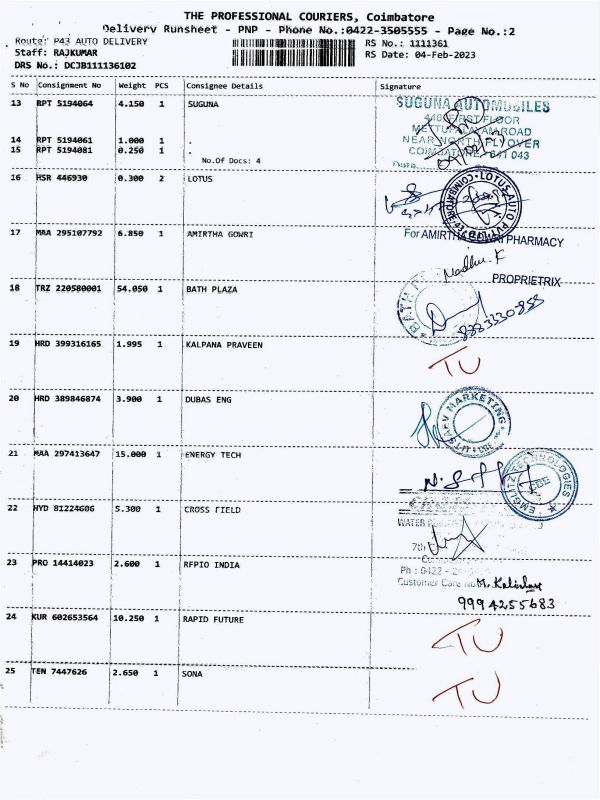 THE PROFESSIONAL COURIERS, Coimbatore
Delivery Runsheet - PNP - Phone No.:0422-3505555 - Page No.:2
Route: P43 AUTO DELIVERY
RS No.: 1111361
Staff: RAJKUMAR
RS Date: 04-Feb-2023
DRS No.: DCJB111136102
S No Consignment No Weight PCS Consignee Details Signature
13 RPT 5194064 4.150 1 SUGUNA
SUGUNA AUTOMOBILES
FIRST FLOOR
METTUPALAYAM ROAD
14 RPT 5194061 1.000 1 .
NEAR NORTH FLYOVER
15 RPT 5194081 0.250 1 .
COIMBATORE - 641 043
No.Of Docs: 4
16 HSR 446930 0.300 2 LOTUS
LOTUS AUTO
COIMBATORE
17 MAA 295107792 6.850 1 AMIRTHA GOWRI
For AMIRTHA GOWRI PHARMACY
Madhu. K
PROPRIETRIX
18 TRZ 220580001 54.050 1 BATH PLAZA
BATH
19 HRD 399316165 1.995 1 KALPANA PRAVEEN
TU
20 HRD 389846874 3.900 1 DUBAS ENG
MARKETING
21 MAA 297413647 15.000 1 ENERGY TECH
EMGLITZ TECHNOLOGIES
CBE
22 HYD 81224606 5.300 1 CROSS FIELD
WATER
7th
23 PRO 14414023 2.600 1 RFPIO INDIA
Ph : 0422 -
Customer Care No
9994255683
24 KUR 602653564 10.250 1 RAPID FUTURE
TU
25 TEN 7447626 2.650 1 SONA
TU